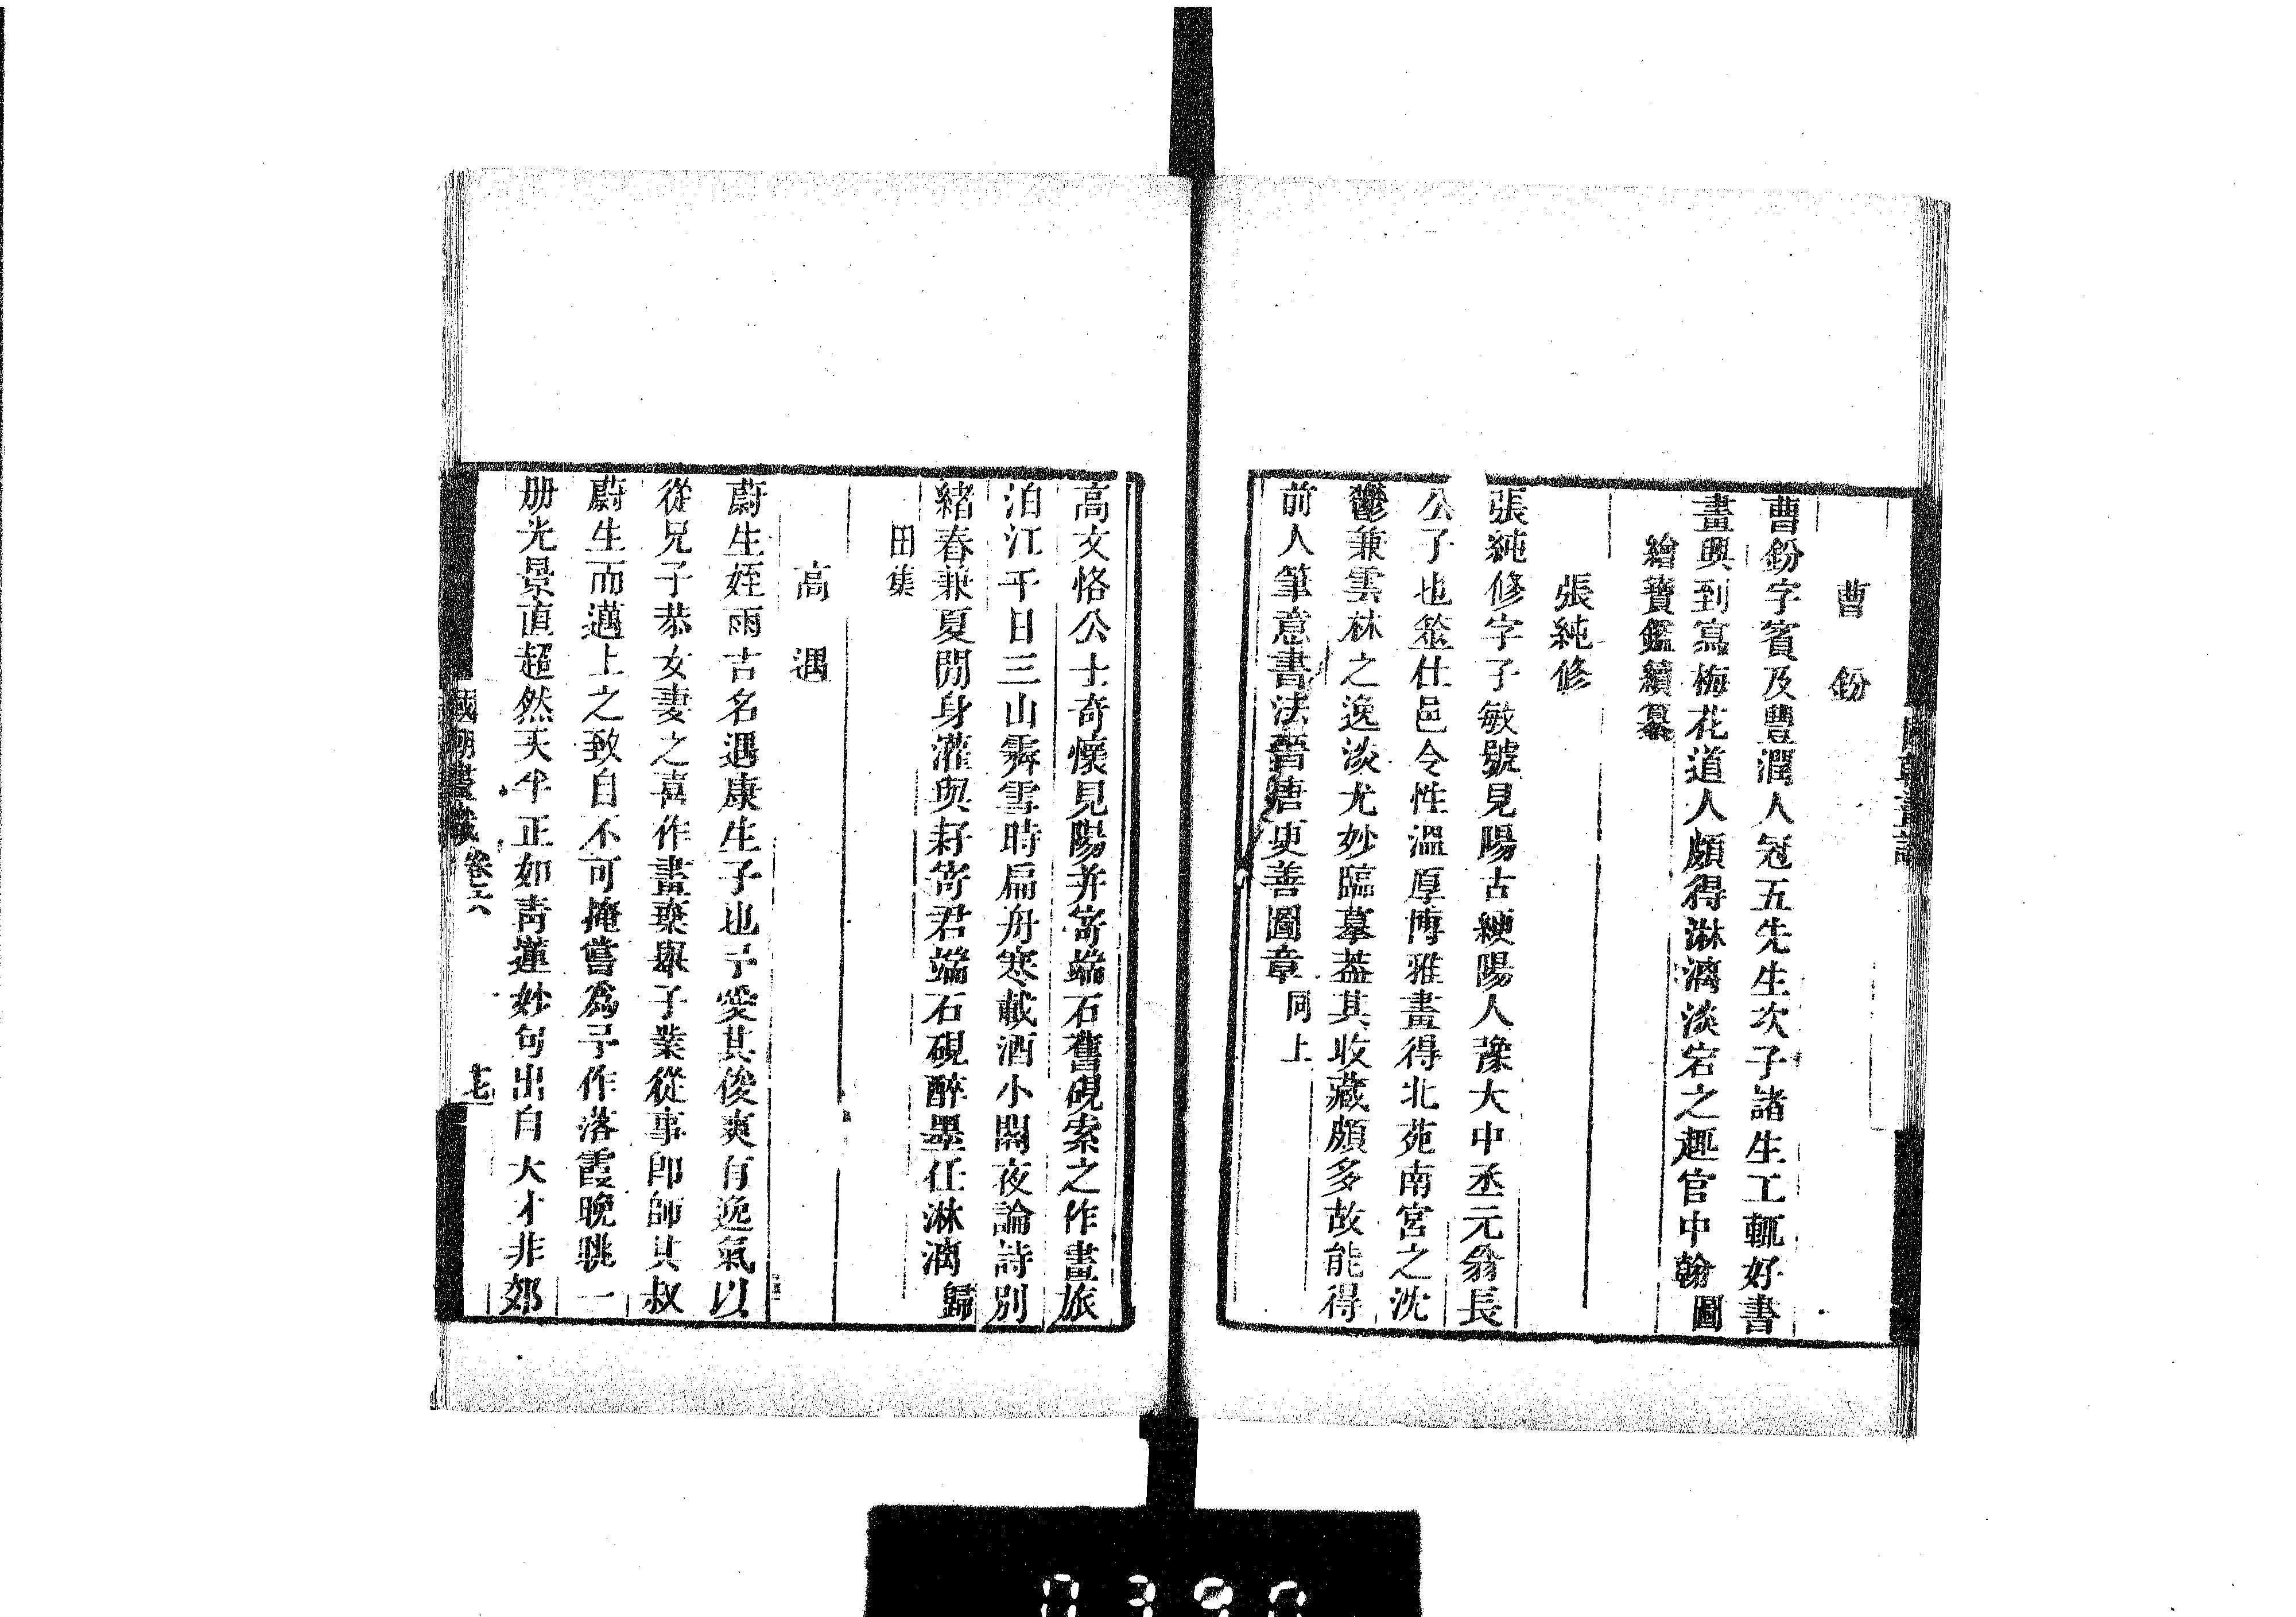 曹鈖
曹鈖字賓及豐潤人冠五先生次子諸生工輒好書
畫興到寫梅花道人頗得淋漓淡宕之趣官中翰圖
繪寶鑑續纂
張純修
張純修字子敏號見陽古綆陽人豫大中丞元翁長
公子也筮仕邑令性溫厚博雅畫得北苑南宮之沈
鬱兼雲林之逸淡尤妙臨摹葢其收藏頗多故能得
前人筆意書法晉唐更善圖章同上
高文恪公士奇懷見陽并寄端石舊硯索之作畫旅
泊江干日三山霽雪時扁舟寒載酒小閣夜論詩別
緒春兼夏閒身灌與耔寄君端石硯醉墨任淋漓歸
田集
高遇
蔚生姪雨吉名遇康生子也予愛其俊爽有逸氣以
從兄子恭女妻之喜作畫棄舉子業從事卽師其叔
蔚生而邁上之致自不可掩嘗爲予作落霞晚眺一
册光景直超然天半正如靑蓮妙句出自大才非郊
國朝畫識 卷六 十七